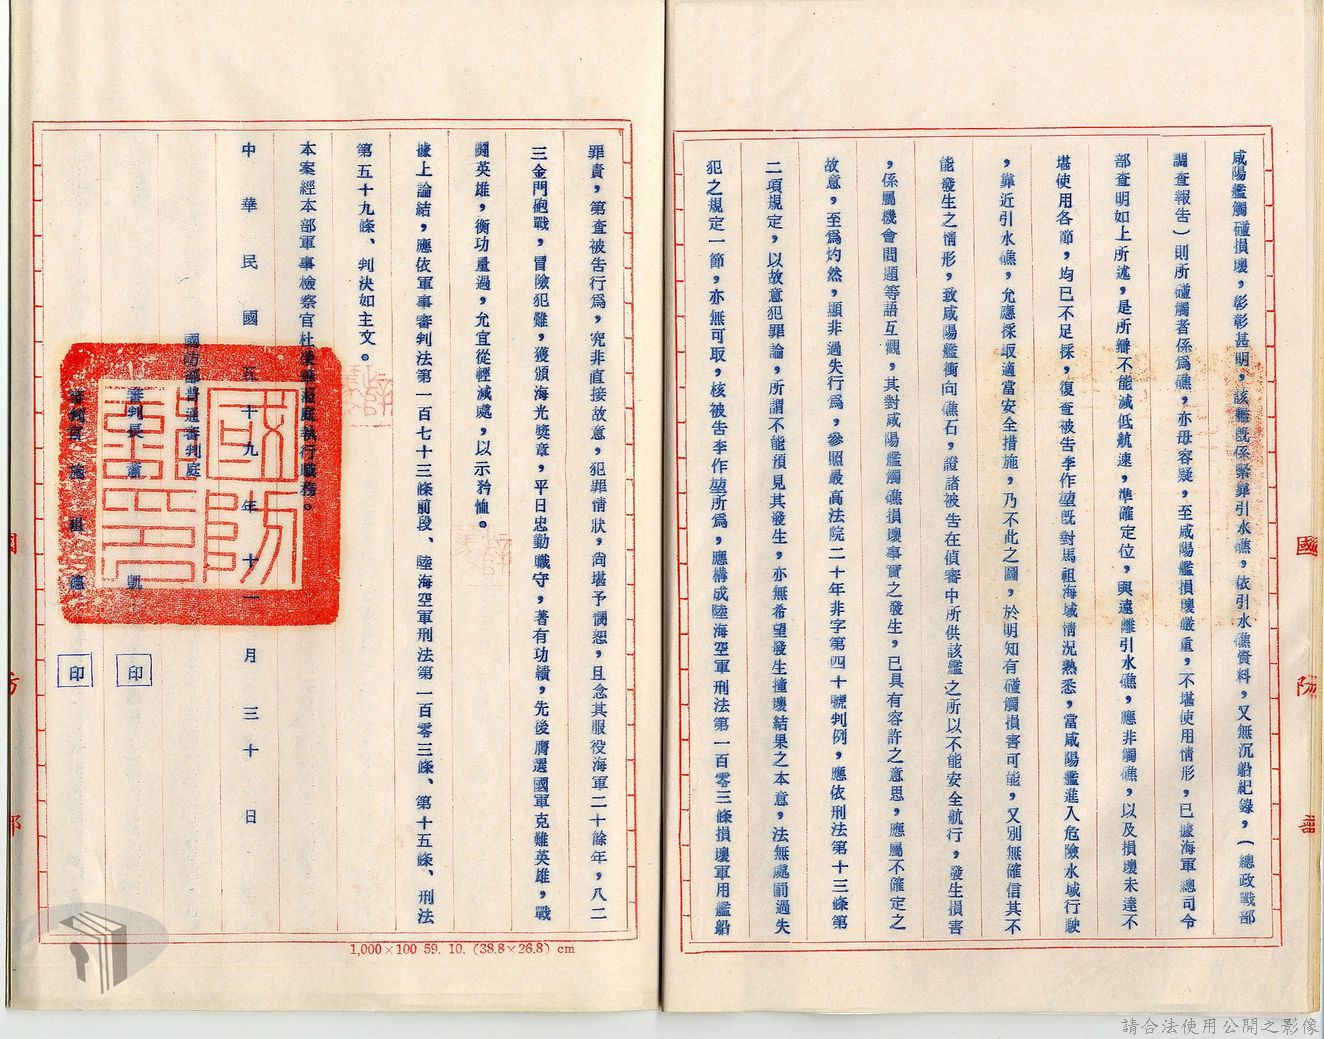 咸陽艦觸碰損壞，彰彰甚明，該艦既係緊靠引水礁，依引水礁資料，又無沉船紀錄，（總政戰部
調查報告）則所碰觸者係爲礁，亦毋容疑，至咸陽艦損壞嚴重，不堪使用情形，已據海軍總司令
部查明如上所述，是所辯不能減低航速，準確定位，與遠離引水礁，應非觸礁，以及損壞未達不
堪使用各節，均已不足採，復查被告李作堃既對馬祖海域情況熟悉，當咸陽艦進入危險水域行駛
，靠近引水礁，允應採取適當安全措施，乃不此之圖，於明知有碰觸損害可能，又別無確信其不
能發生之情形，致咸陽艦衝向礁石，證諸被告在偵審中所供該艦之所以不能安全航行，發生損害
，係屬機會問題等語互觀，其對咸陽艦觸礁損壞事實之發生，已具有容許之意思，應屬不確定之
故意，至爲灼然，顯非過失行爲，參照最高法院二十年非字第四十號判例，應依刑法第十三條第
二項規定，以故意犯罪論，所謂不能預見其發生，亦無希望發生撞壞結果之本意，法無處罰過失
犯之規定一節，亦無可取，核被告李作堃所爲，應構成陸海空軍刑法第一百零三條損壞軍用艦船
罪責，第查被告行爲，究非直接故意，犯罪情狀，尚堪予憫恕，且念其服役海軍二十餘年，八二
三金門砲戰，冒險犯難，獲頒海光獎章，平日忠勤職守，著有功績，先後膺選國軍克難英雄，戰
鬪英雄，衡功量過，允宜從輕減處，以示矜恤。
據上論結，應依軍事審判法第一百七十三條前段、陸海空軍刑法第一百零三條、第十五條、刑法
第五十九條、判決如主文。
本案經本部軍事檢察官杜庭執行職務。
中華民國五十九年十一月三十日
國防部普通審判庭
審判長 凱 印
審判官 施 德 印
國防部
1,000×100 59. 10. (38.8×26.8) cm
國防部
請合法使用公開之影像